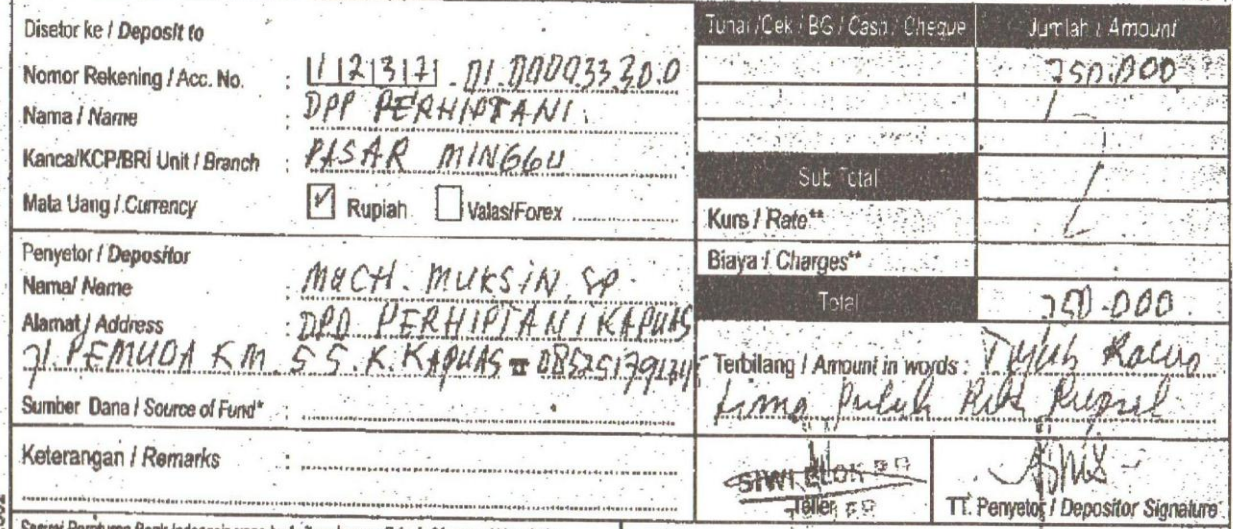 Disetor ke / Deposit to
Nomor Rekening / Acc. No. : 1 1 2 3 1 7 1 . 01.000033.30.0
Nama / Name : DPP PERHIPTANI
Kanca/KCP/BRI Unit / Branch : PASAR MINGGU
Mata Uang / Currency ✓ Rupiah Valas/Forex
Penyetor / Depositor
Nama/ Name : MUCH. MUKSIN, SP.
Alamat / Address : DPD PERHIPTANI KAPUAS
Jl. PEMUDA KM. 5 5. K. KAPUAS
Sumber Dana / Source of Fund* :
Keterangan / Remarks :
Tunai /Cek / BG / Cash / Cheque Jumlah / Amount
750.000
Sub Total
Kurs / Rate**
Biaya / Charges**
Total 750.000
Terbilang / Amount in words : Tujuh Ratus
Lima Puluh Ribu Rupiah
SIWI ELOK
Teller
TT. Penyetor / Depositor Signature